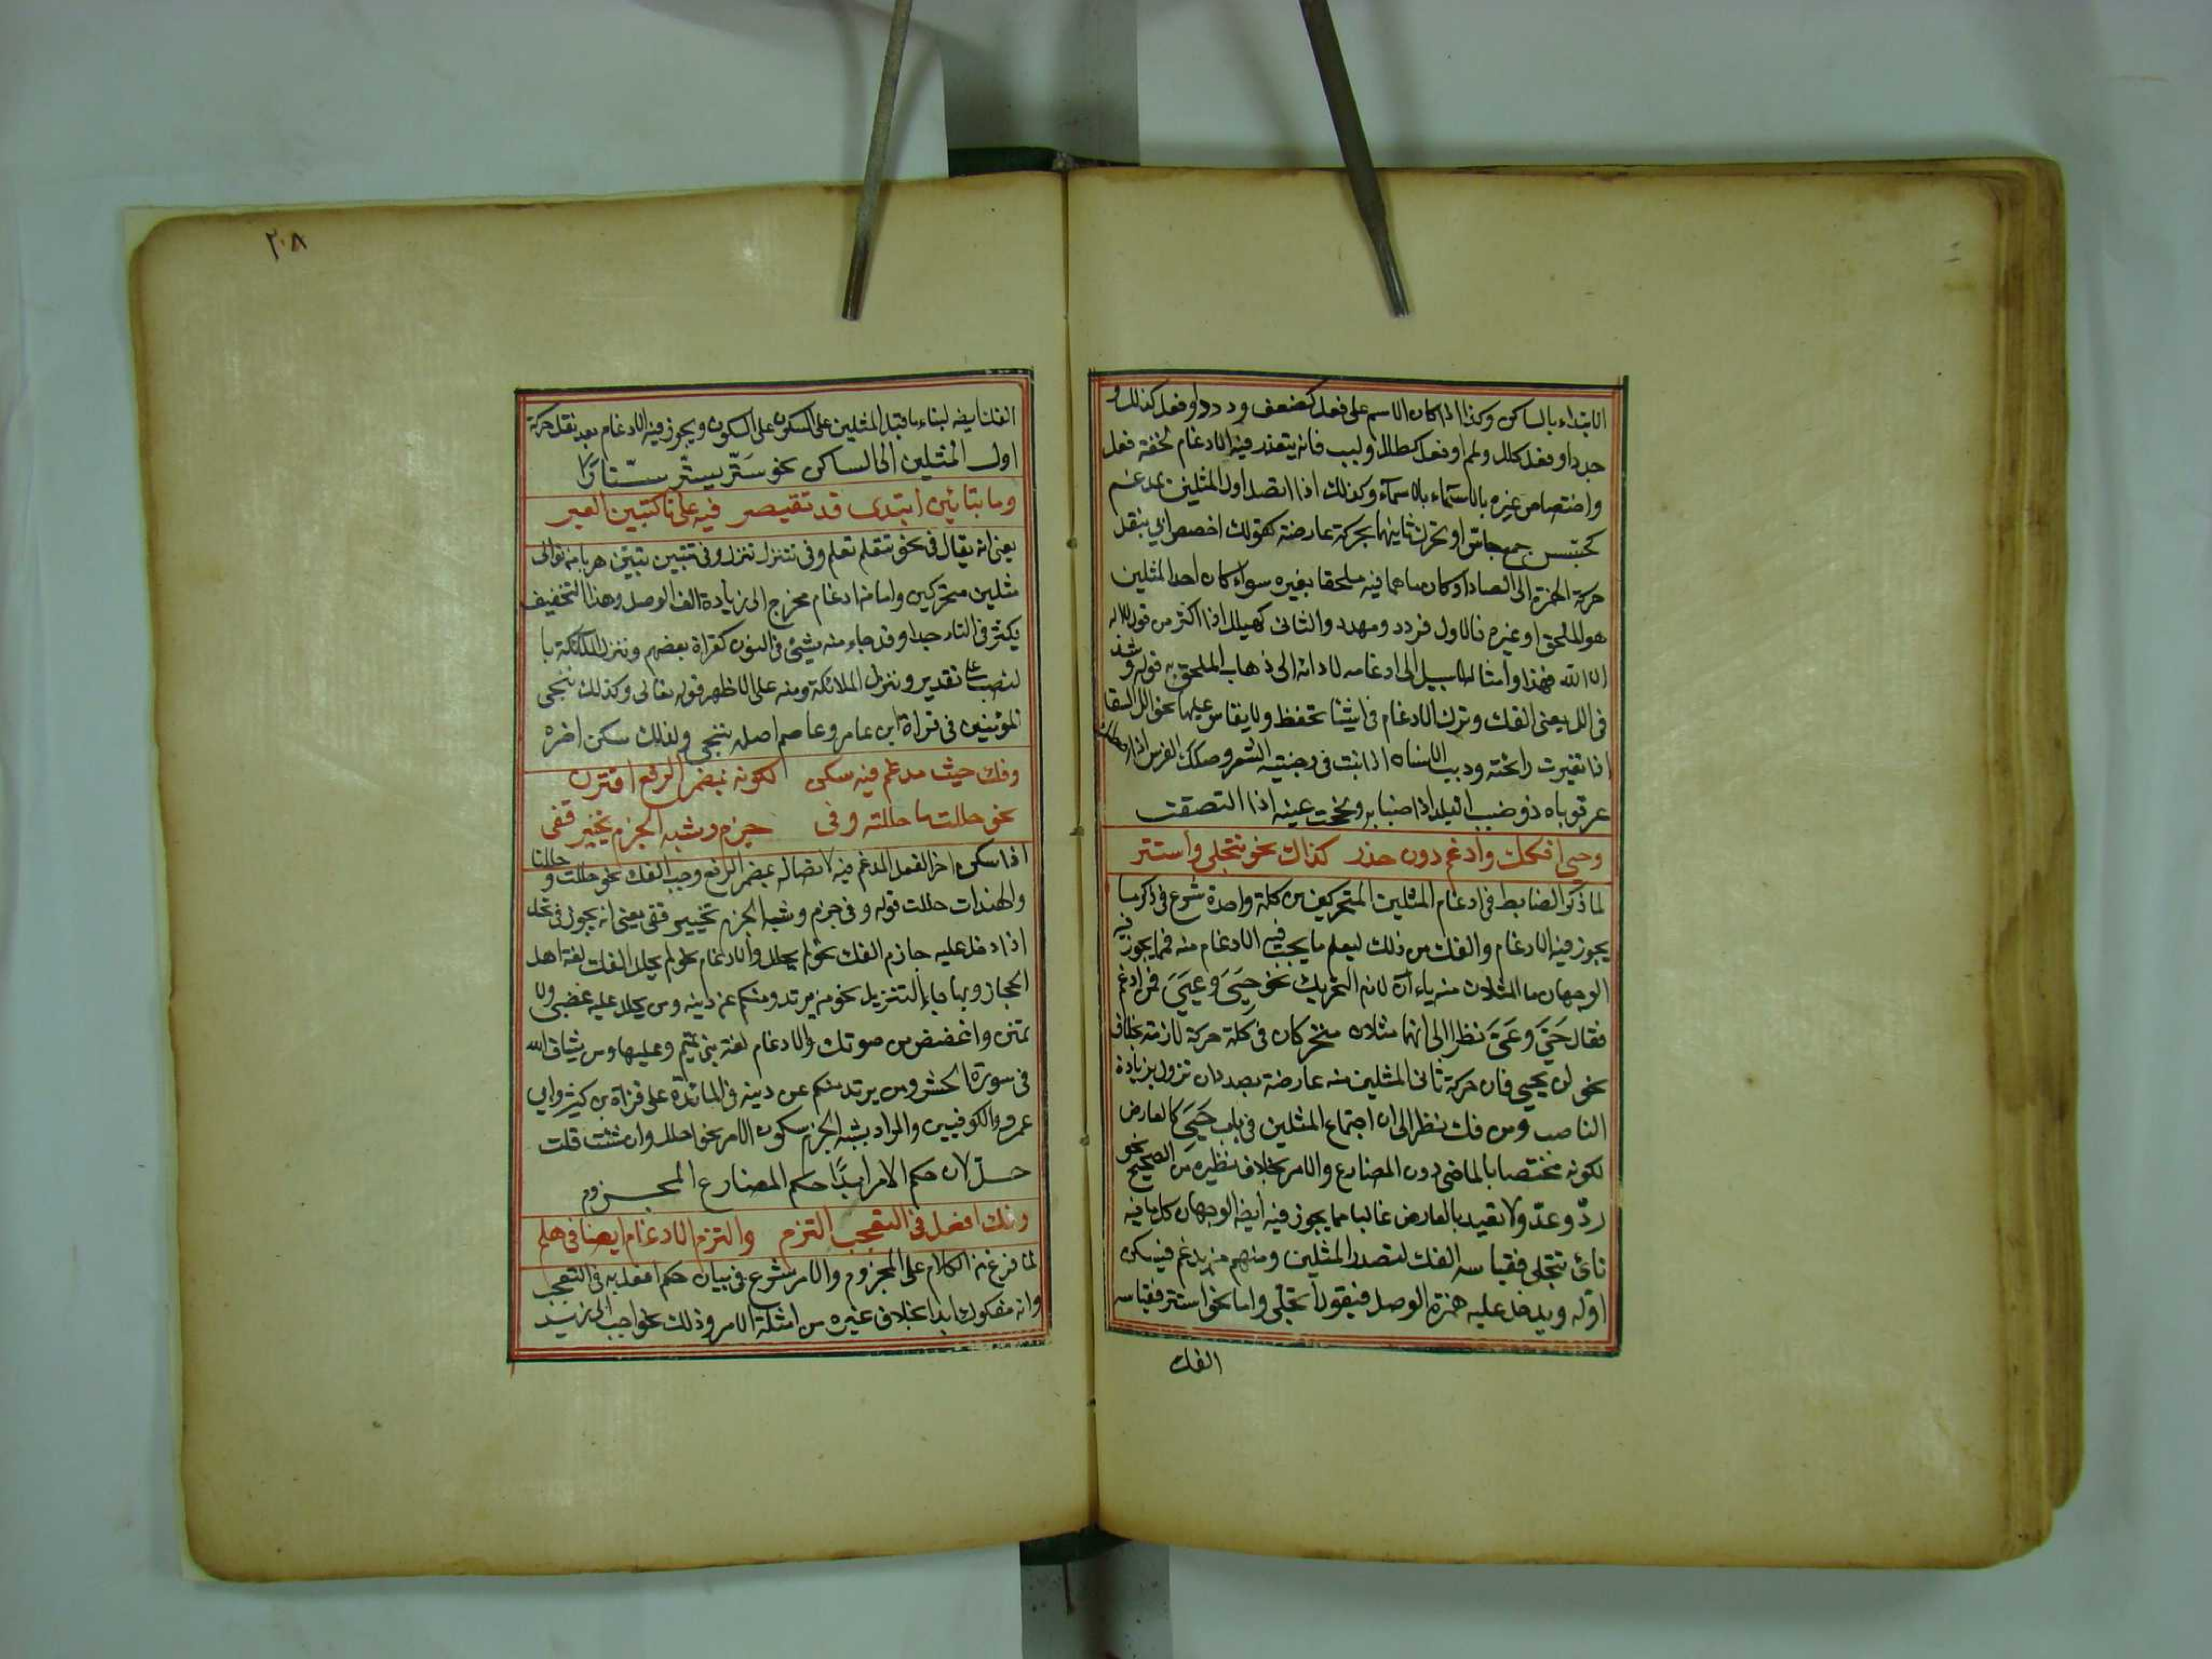 الابتداء بالساكن وكذا اذا كان الاسم على فعل كضعف ودرد او فعل كذلل و
جدد او فعل ككلل ولمم او فعل كطلل ولبب فانه يتعذر فيه الادغام لخفة فعل
واختصاص غيره بالاسماء وكذلك اذا اتصل اول المثلين بمدغم
كجسس جمع جاس او تحرك ثانيهما بحركة عارضة كقولك اخصص ابي بنقل
حركة الهمزة الى الصاد او كان ما هما فيه ملحقا بغيره سواء كان احد المثلين
هو الملحق او غيره فالاول قردد ومهدد والثاني كهيلل اذا اكثر من قول لا اله
الا الله فهذا وامثاله لا سبيل الى ادغامه لادائه الى ذهاب الملحق به قوله وشذ
في الل يعني الفك وترك الادغام في اشيا تحفظ ولا يقاس عليها نحو الل السقا
اذا تغيرت رائحته ودبب الانسان اذا نبت في وجنتيه الشعر وصكك الفرس اذا اصطك
عرقوباه وضبب البلد اذا ضبابه ولححت عينه اذا التصقت
وحيي افكك وادغم دون حذر كذاك نحو تتجلى واستتر
لما ذكر الضابط في ادغام المثلين المتحركين من كلمة واحدة شرع في ذكر ما
يجوز فيه الادغام والفك من ذلك ليعلم ما يجب فيه الادغام منه فمما يجوز فيه
الوجهان ما المثلان منه ياء ان لازم التحريك نحو حيي وعيي فمن ادغم
فقال حي وعي نظر الى انهما مثلان متحركان في كلمة حركة لازمة بخلاف
نحو لن يحيي فان حركة ثاني المثلين منه عارضة بصدد ان تزول بزيادة
الناصب ومن فك نظر الى ان اجتماع المثلين في باب حيي كالعارض
لكونه مختصا بالماضي دون المضارع والامر بخلاف نظيره من الصحيح نحو
رد وعد ولا تقيد بالعارض غالبا مما يجوز فيه ايضا الوجهان كل ما فيه
تائي تتجلى فقياسه الفك لتصدر المثلين ومنهم من يدغم فيسكن
اوله ويدخل عليه همزة الوصل فيقول اتجلى واما نحو استتر فقياسه
الفك
٢٠٨
الفك ايضا لبناء ما قبل المثلين على السكون على السكون ويجوز فيه الادغام بعد نقل حركة
اول المثلين الى الساكن نحو ستر يستر ستارا
وما بتائين ابتدى قد تقتصر فيه على تا كتبين العبر
يعني انه يقال في نحو تتعلم تعلم وفي تتنزل تنزل وفي تتبين تبين هربا من توالى
مثلين متحركين واما من ادغام محرج الى زيادة الف الوصل وهذا التخفيف
يكثر في التاء جدا وقد جاء منه شيئ في النون كقراءة بعضهم ونزل الملائكة با
لنصب على تقدير وننزل الملائكة ومنه على الاظهر قوله تعالى وكذلك نجي
المؤمنين في قراءة ابن عامر وعاصم اصله ننجي ولذلك سكن اخره
وفك حيث مدغم فيه سكن لكونه بمضمر الرفع اقترن
نحو حللت ما حللته وفي جزم وشبه الجزم تخيير قفي
اذا سكن اخر الفعل المدغم فيه لاتصاله بمضمر الرفع وجب الفك نحو حللت و حللنا
والهندات حللت قوله وفي جزم وشبه الجزم تخيير قفي يعني انه يجوز في نحو يحل
اذا دخل عليه جازم الفك نحو لم يحلل والادغام نحو لم يحل الفك لغة اهل
الحجاز وبها جاء التنزيل نحو من يرتدد منكم عن دينه ومن يحلل عليه غضبي ولا
تمنن واغضض من صوتك والادغام لغة بني تميم وعليها ومن يشاق الله
في سورة الحشر ومن يرتد منكم عن دينه في المائدة على قراءة بن كثير وابي
عمرو والكوفيين والمراد بشبه الجزم سكون الامر نحو احلل وان شئت قلت
حل لان حكم الامر ابدا حكم المضارع المجزوم
وفك افعل في التعجب التزم والتزم الادغام ايضا في هلم
لما فرغ من الكلام على المجزوم والامر شرع في بيان حكم افعل به في التعجب
وانه مفكوك ابدا بخلاف غيره من امثلة الامر وذلك نحو احبب الى زيد